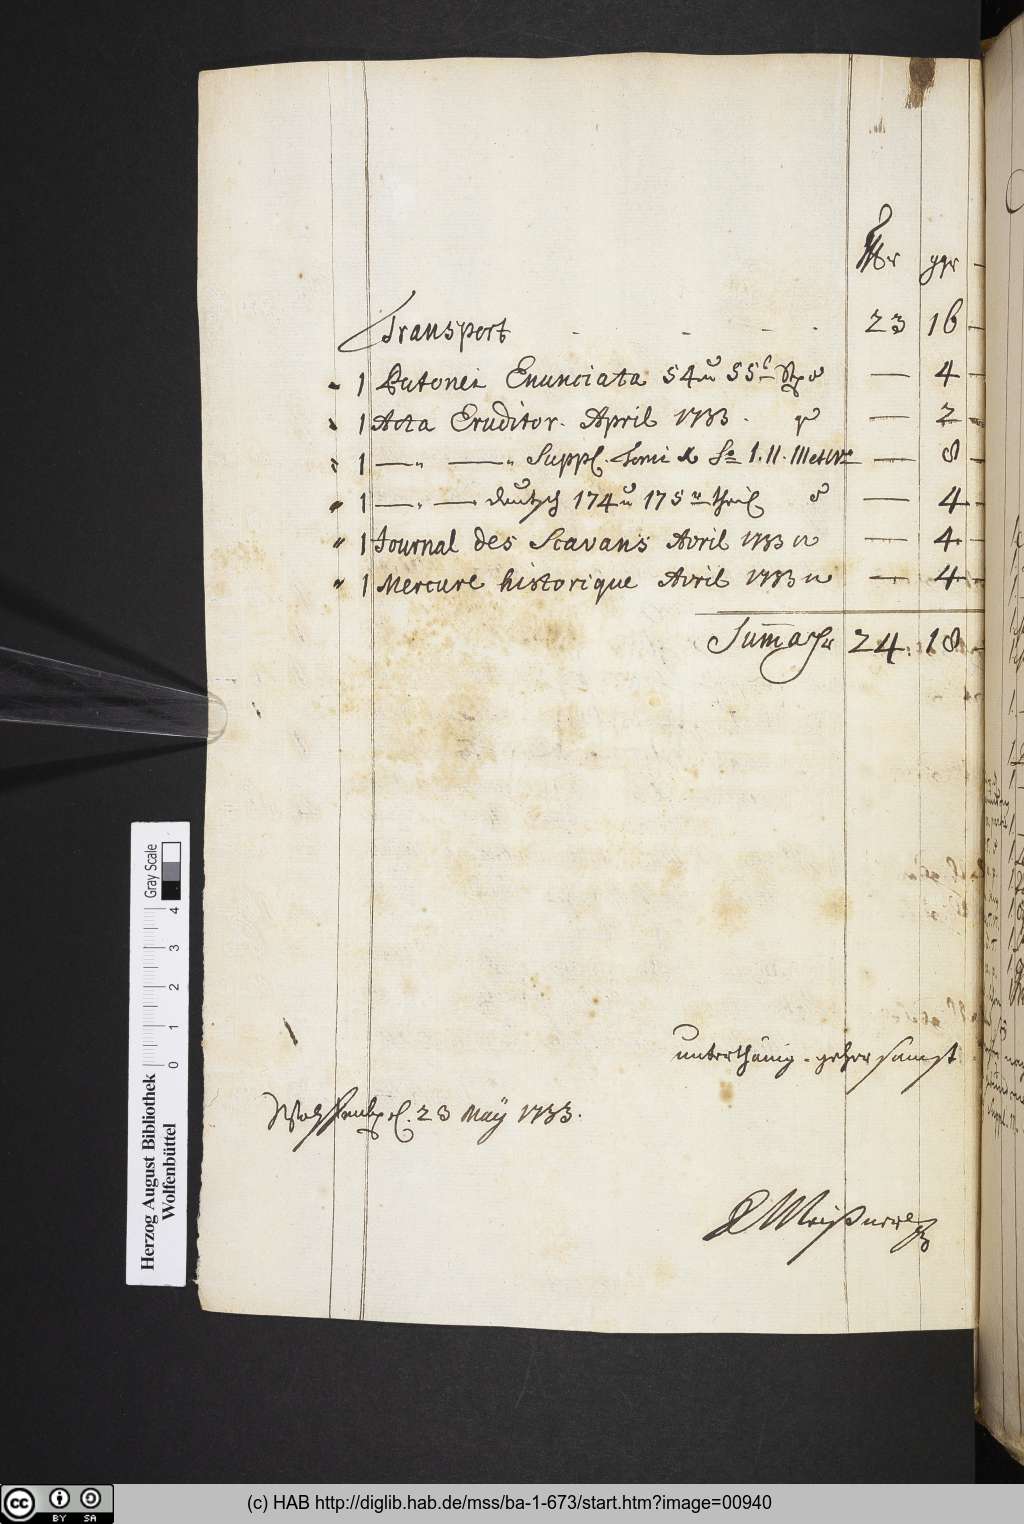 Thlr ggr
Transport - - - - 23 16 -
" 1 Enunciata 54 u 55t — 4 -
" 1 Acta Eruditor. April 1733. — 2 -
" 1 — " — " Suppl. Tomi X S: I. II. III et IV — 8 -
" 1 — " — deutsch 174 u 175 theil — 4 -
" 1 Journal des Scavans Avril 1733 — 4 -
" 1 Mercure historique Avril 1733 — 4 -
Summa 24. 18 -
unterthänig-gehorsamst
Wolffenb. 23 Maÿ 1733.
Meißner
Gray Scale
0 1 2 3 4
Herzog August Bibliothek
Wolfenbüttel
cc BY SA
(c) HAB http://diglib.hab.de/mss/ba-1-673/start.htm?image=00940